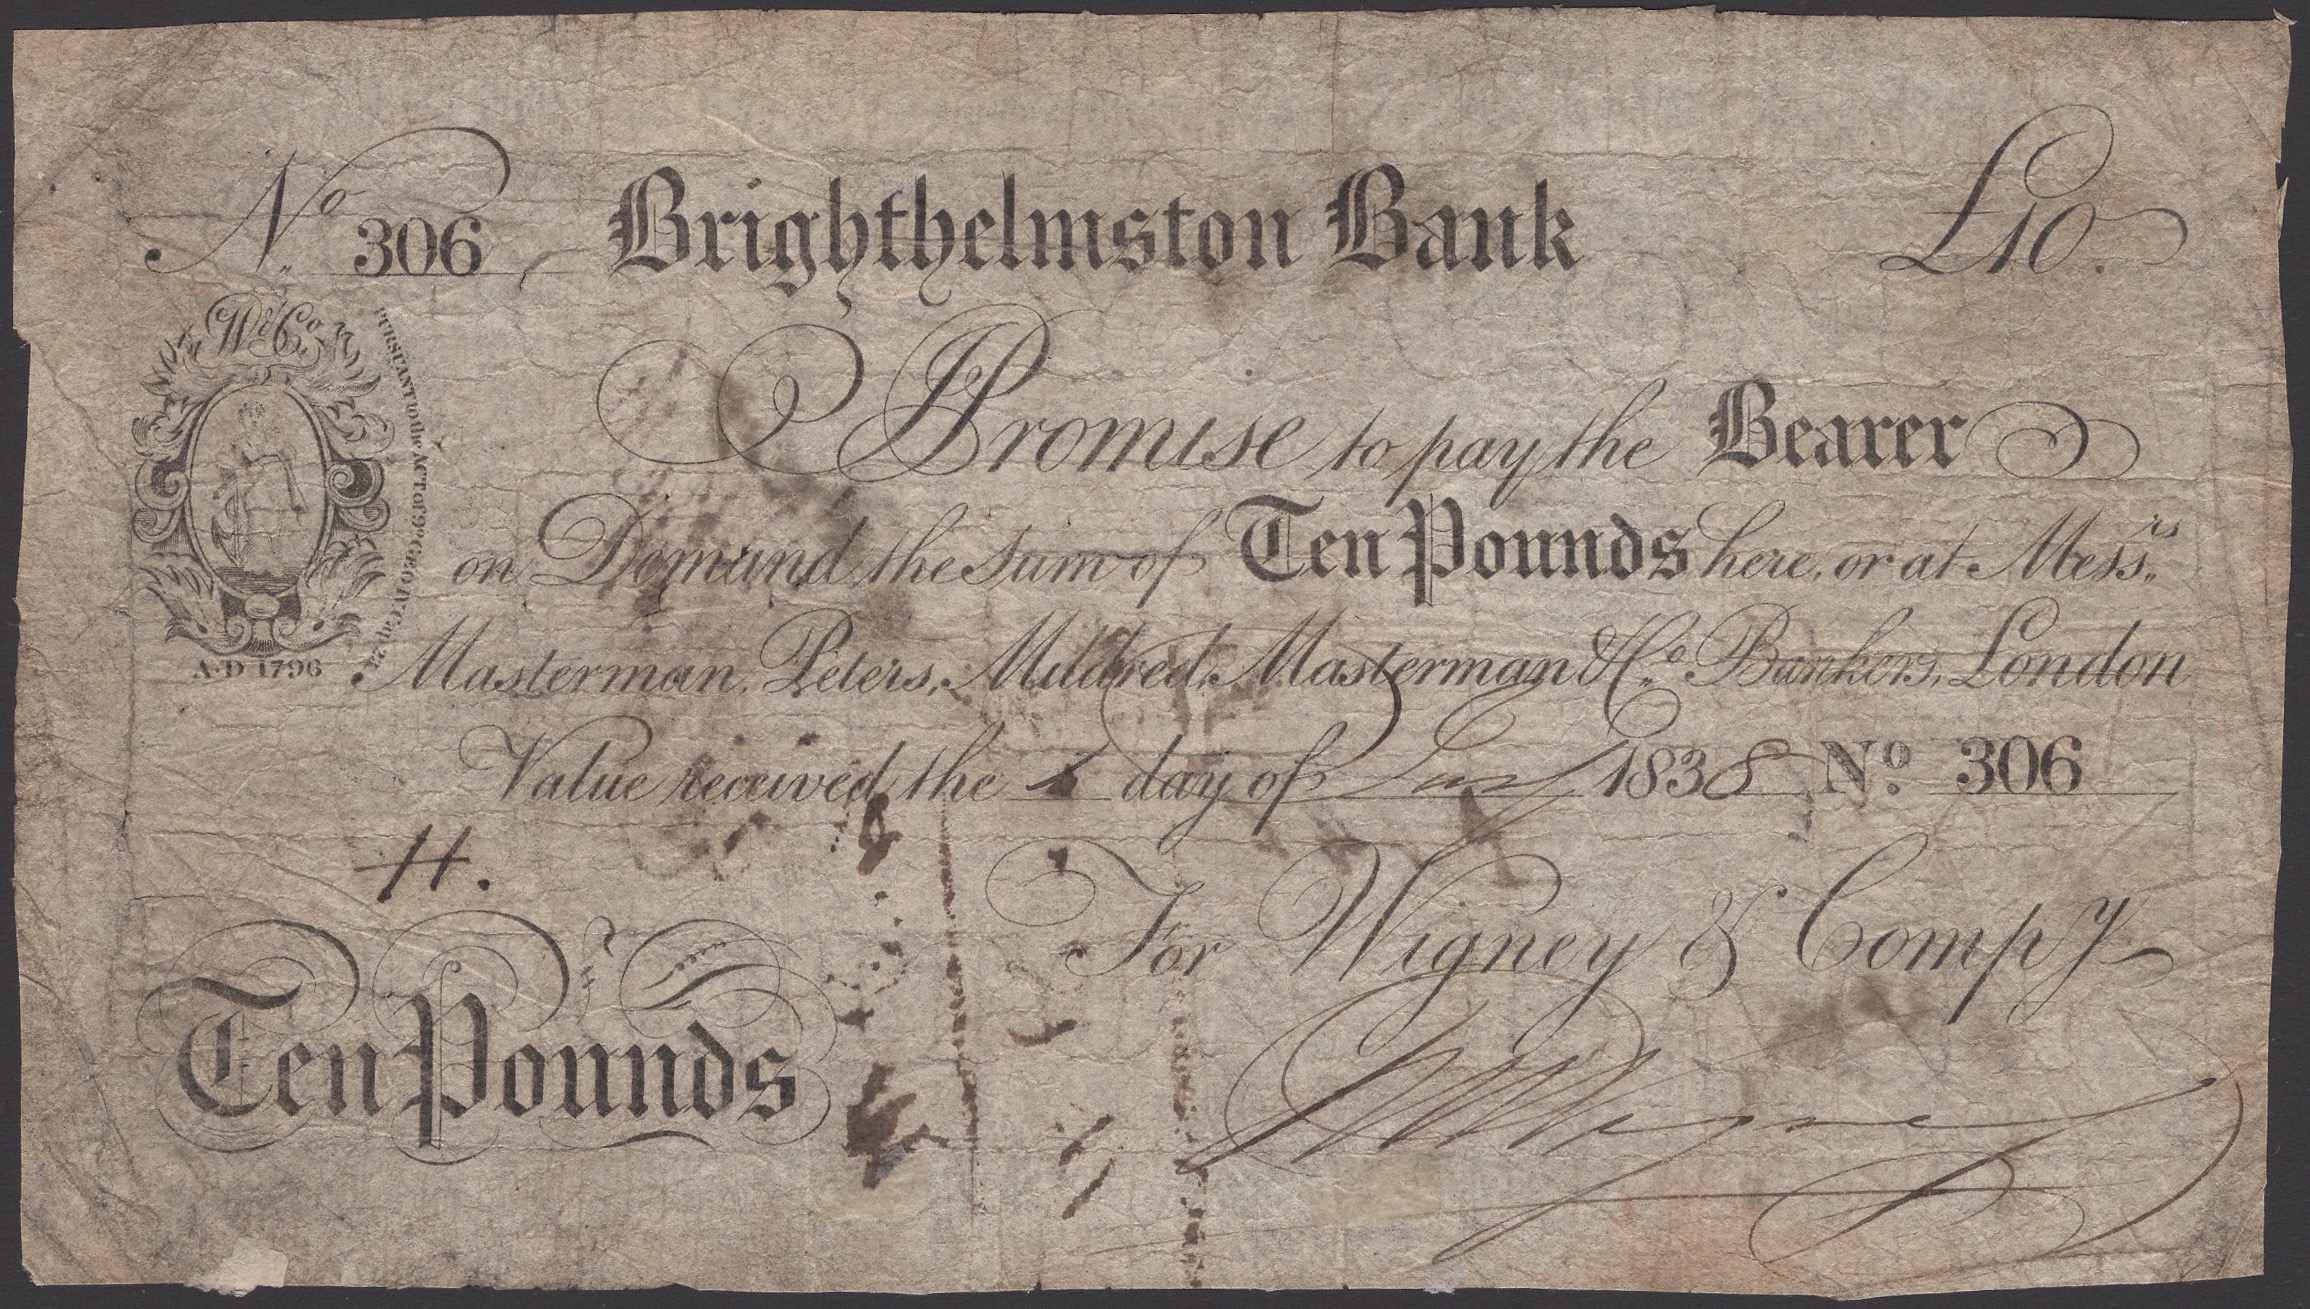 No. 306 Brighthelmston Bank £10.
W & Co.
PURSUANT to the ACT of 9o GEO IV Cap 23
A.D 1796
I Promise to pay the Bearer
on Demand the Sum of Ten Pounds here, or at Messrs.
Masterman, Peters, Mildred, Masterman & Co. Bankers, London
Value received the 1 day of Jany 1838 No. 306
H.
For Wigney & Compy
Ten Pounds
Wigney